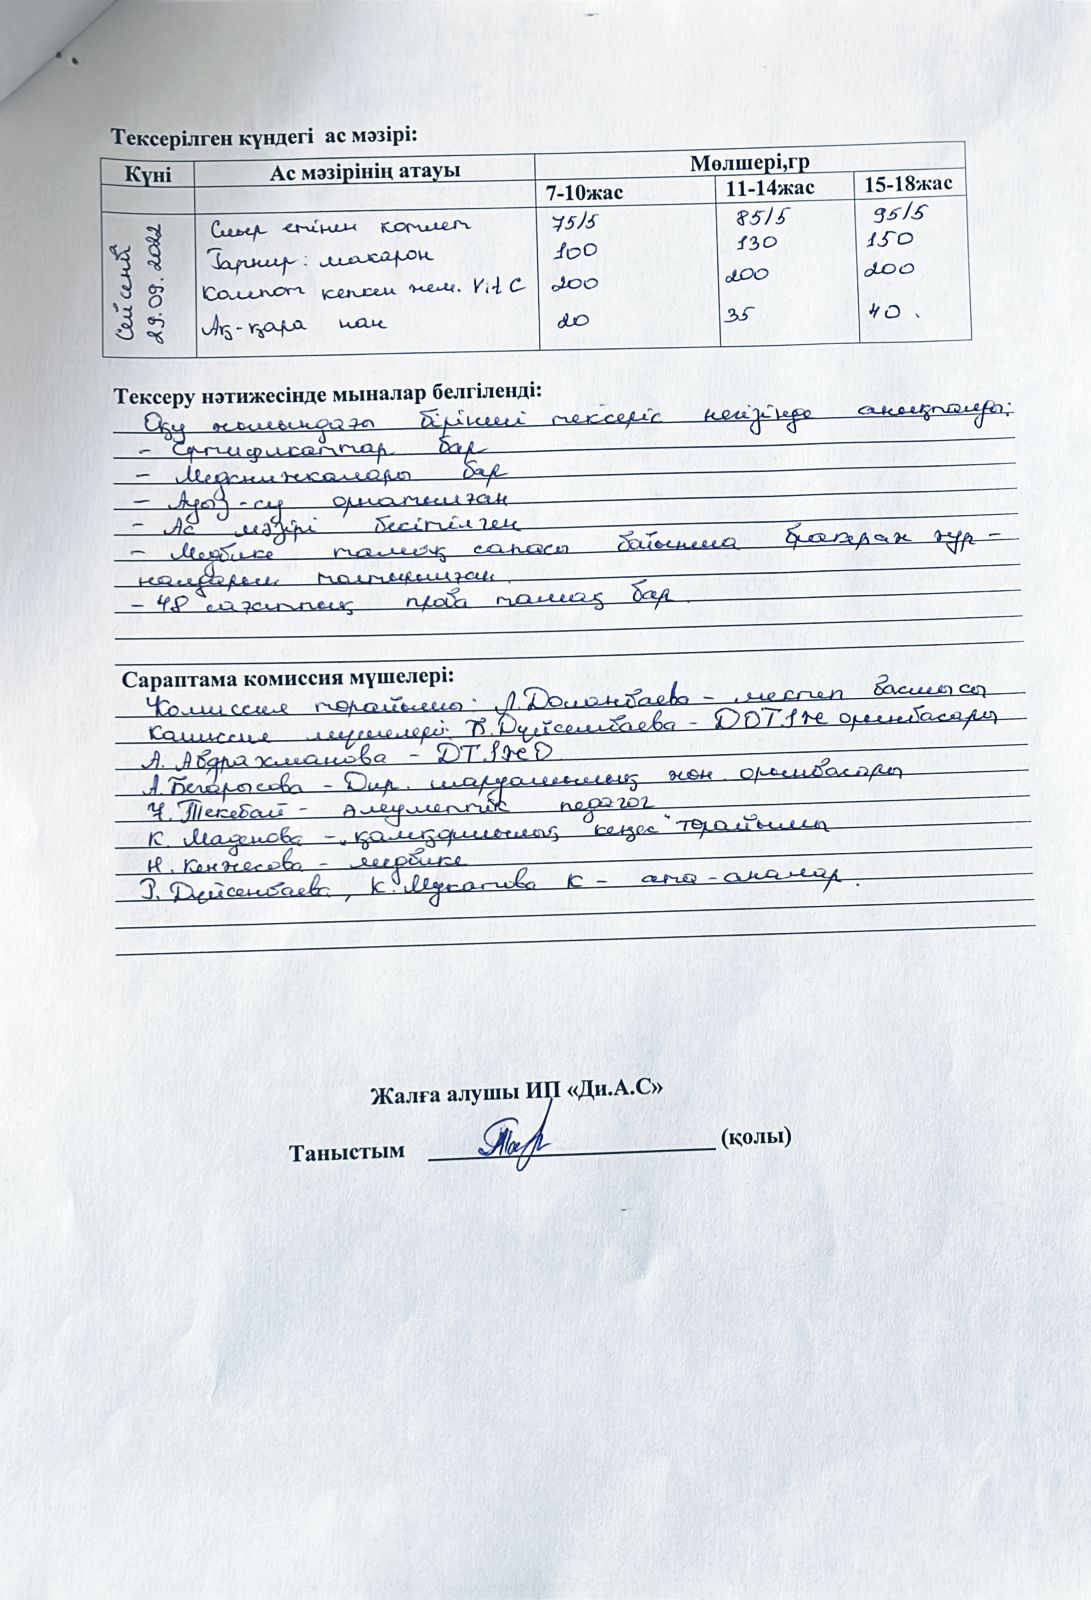 Тексерілген күндегі ас мәзірі:
Күні Ас мәзірінің атауы Мөлшері,гр
7-10жас 11-14жас 15-18жас
Сейсенбі 29.09.2022
Сиыр етінен котлет 75/5 85/5 95/5
Гарнир: макарон 100 130 150
Компот кепкен жем. Vit C 200 200 200
Ақ-қара нан 20 35 40.
Тексеру нәтижесінде мыналар белгіленді:
Оқу жылындағы бірінші тексеріс негізінде анықталды:
- Сртификаттар бар
- Медкнижкалары бар
- Ауыз-су орнатылған
- Ас мәзірі бекітілген
- Медбике тамақ сапасы бойынша бракераж жур-
налдарын толтырылған.
- 48 сағаттық проба тамақ бар.
Сараптама комиссия мүшелері:
Комиссия төрайымы: Л.Доманбаева - мектеп басшысы
Комиссия мүшелері: Б.Дүйсембаева - ДОТІЖ орынбасары
А. Абдрахманова - ДТІЖО
А.Бегарысова - Дир. шаруашылық жөн. орынбасары
Ұ. Текебай - әлеуметтік педагог
К. Маденова - "қамқоршылық кеңес" төрайымы
Н. Кенжесова - медбике
Р. Дүйсенбаева, К. Мукатива К - ата-аналар.
Жалға алушы ИП «Ди.А.С»
Таныстым (қолы)